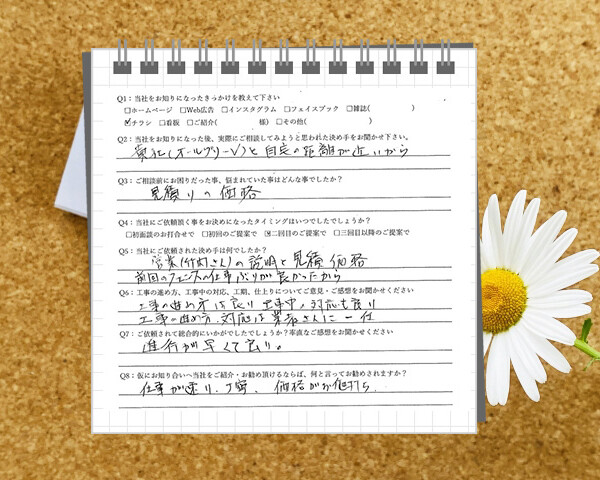 Q1：当社をお知りになったきっかけを教えて下さい
□ホームページ □Web広告 □インスタグラム □フェイスブック □雑誌( )
☑チラシ □看板 □ご紹介( 様) □その他( )
Q2：当社をお知りになった後、実際にご相談してみようと思われた決め手をお聞かせ下さい。
貴社(オールグリーン)と自宅の距離が近いから
Q3：ご相談前にお困りだった事、悩まれていた事はどんな事でしたか？
見積りの価格
Q4：当社にご依頼頂く事をお決めになったタイミングはいつでしたでしょうか？
□初面談のお打合せで □初回のご提案で ☒二回目のご提案で □三回目以降のご提案で
Q5：当社にご依頼された決め手は何でしたか？
営業(竹内さん)の説明と見積価格
前回のフェンスの仕事ぶりが良かったから
Q6：工事の進め方、工事中の対応、工期、仕上りについてご意見・ご感想をお聞かせください
工事の進め方は良い 工事中の対応も良い
工事の進め方、対応は業者さんに一任
Q7：ご依頼されて総合的にいかがでしたでしょうか？率直なご感想をお聞かせください
進行が早くて良い。
Q8：仮にお知り合いへ当社をご紹介・お勧め頂けるならば、何と言ってお勧めされますか？
仕事が速い、丁寧、価格がお値打ち、